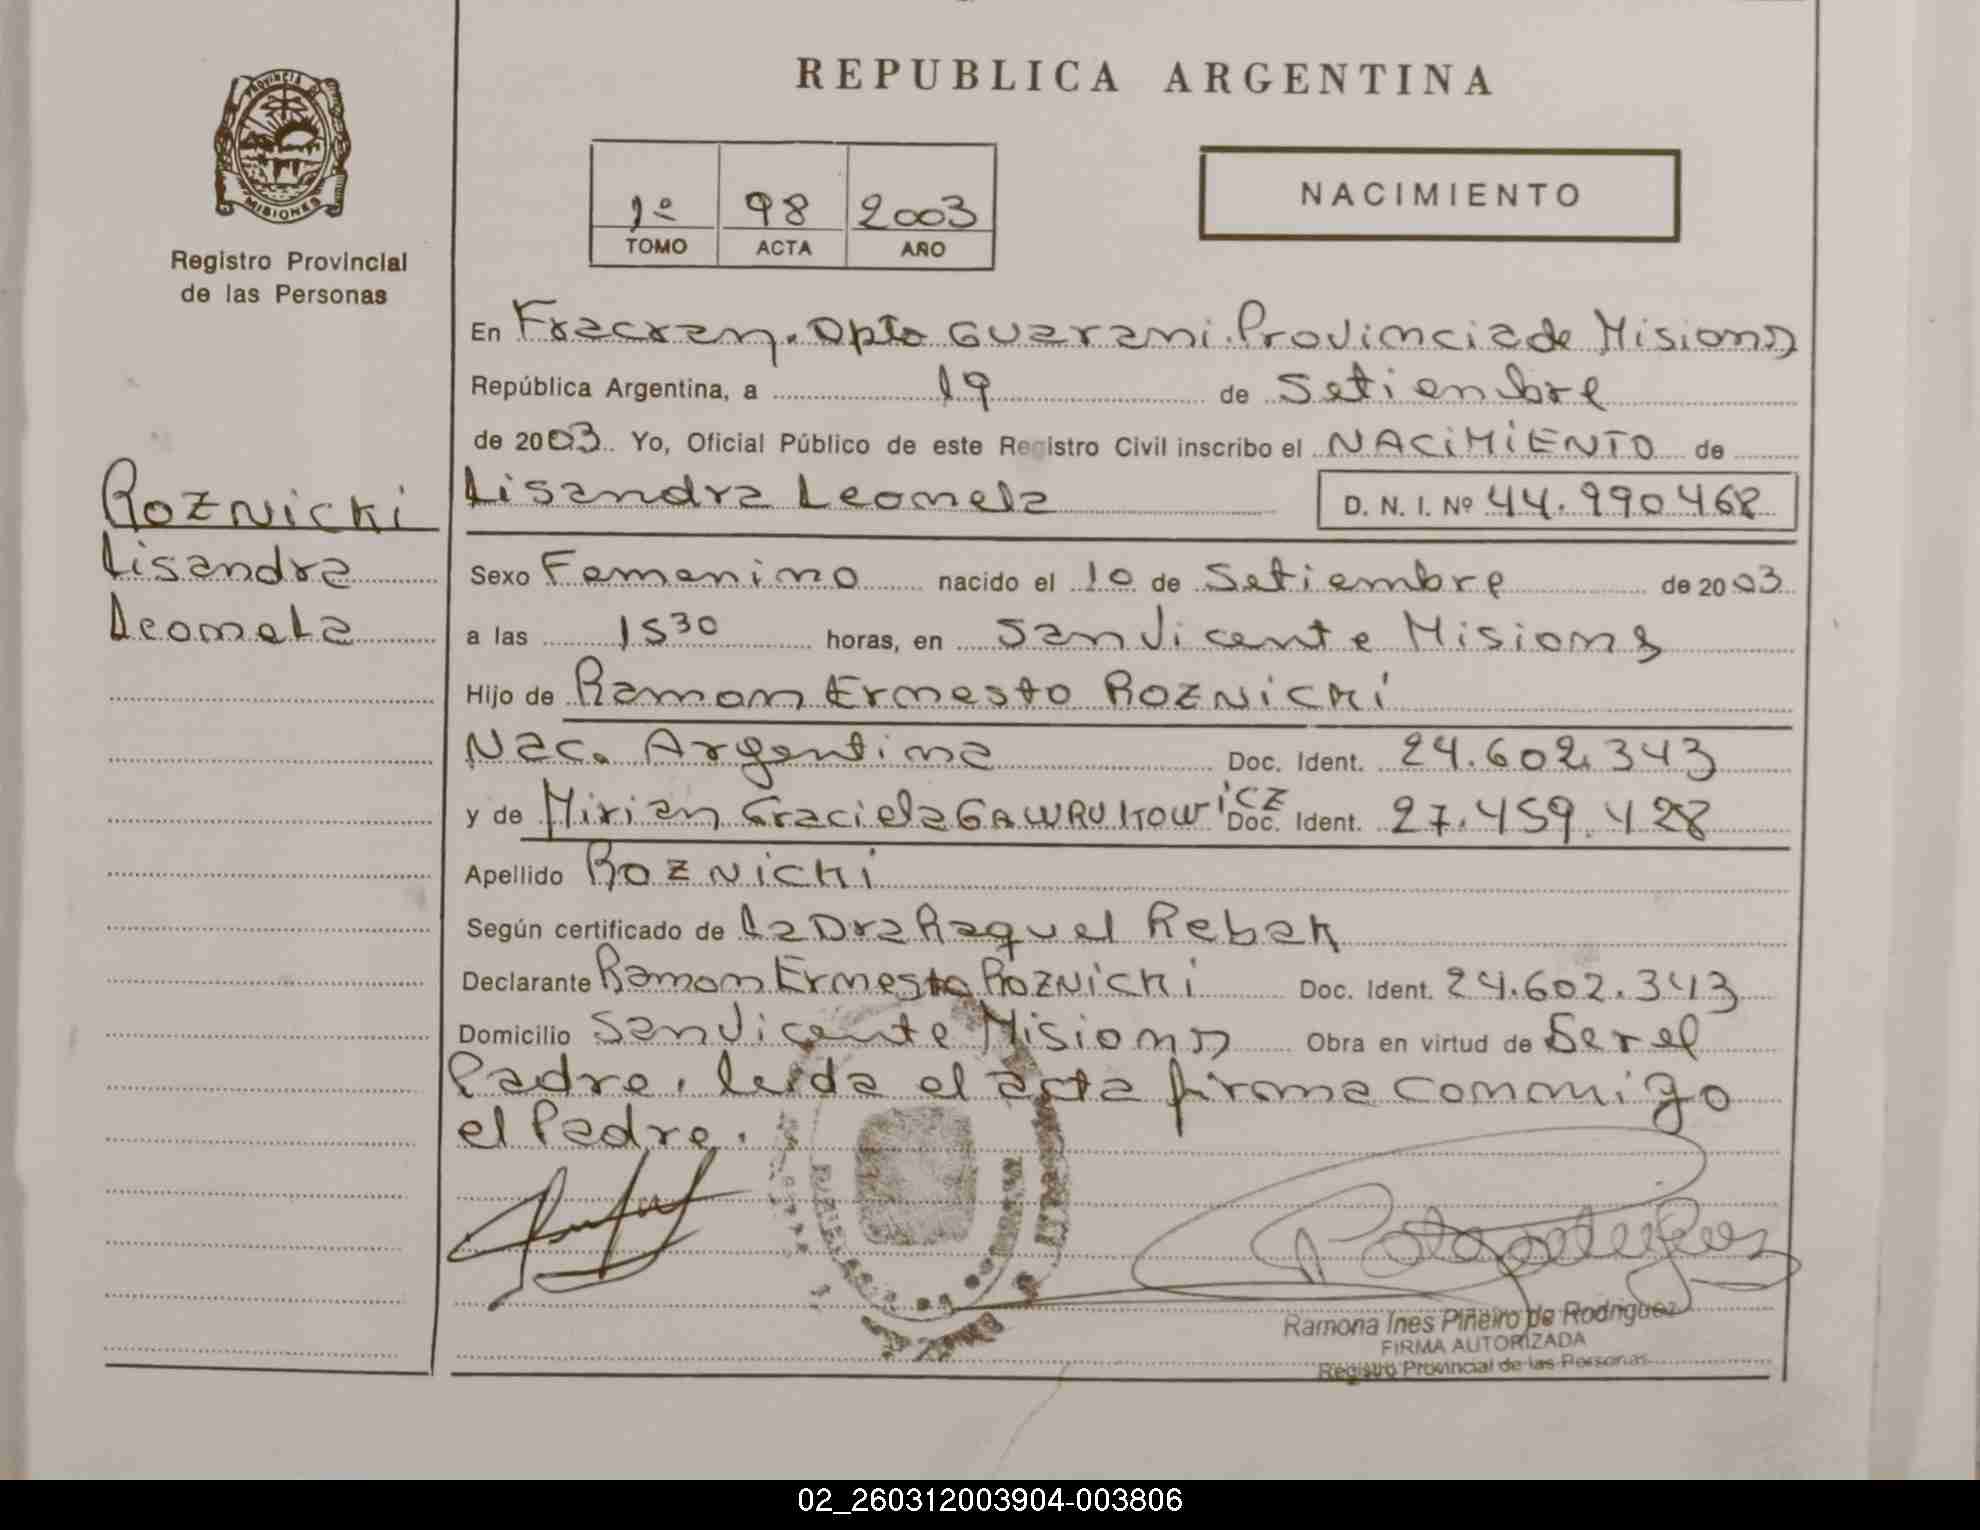 REPUBLICA ARGENTINA
PROVINCIA DE
MISIONES
Registro Provincial
de las Personas
1º 98 2003
TOMO ACTA AÑO
NACIMIENTO
En Fracran. Dpto Guarani. Provincia de Misiones
República Argentina, a 19 de Setiembre
de 2003 Yo, Oficial Público de este Registro Civil inscribo el NACIMIENTO de
Lisandra Leonela D. N. I. Nº 44.990468
Roznicki
Lisandra
Leonela
Sexo Femenino nacido el 10 de Setiembre de 2003
a las 15 30 horas, en San Vicente Misiones
Hijo de Ramon Ernesto ROZNICKI
Nac. Argentina Doc. Ident. 24.602.343
y de Mirian Graciela GAWRUKOWICZ Doc. Ident. 27.459.428
Apellido ROZNICKI
Según certificado de la Dra Raquel Rebak
Declarante Ramon Ernesto ROZNICKI Doc. Ident. 24.602.343
Domicilio San Vicente Misiones Obra en virtud de Ser el
Padre. leida el acta firma conmigo
el Padre.
Ramona Ines Piñeiro de Rodriguez
FIRMA AUTORIZADA
Registro Provincial de las Personas
02_260312003904-003806